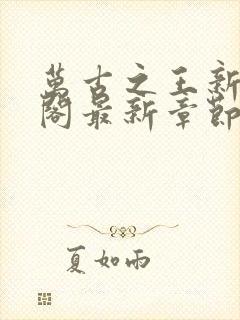 萬古之王新
閣最新章節
夏如雨